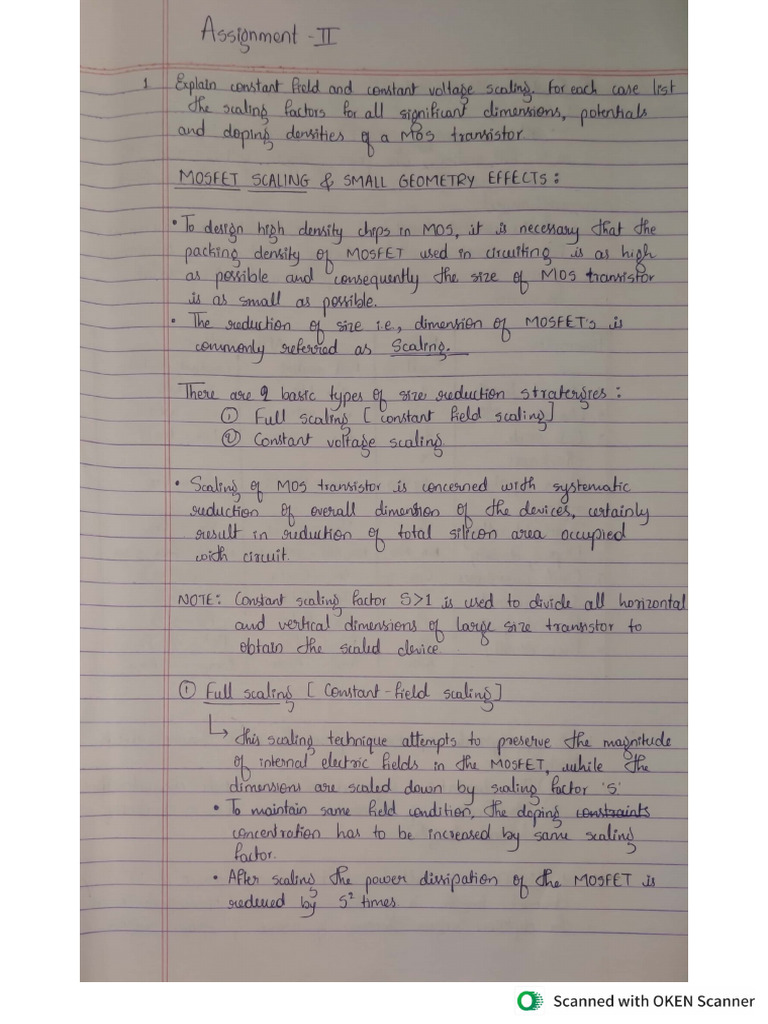 Assignment - II
1 Explain constant field and constant voltage scaling. For each case list
the scaling factors for all significant dimensions, potentials
and doping densities of a MOS transistor
MOSFET SCALING & SMALL GEOMETRY EFFECTS :
• To design high density chips in MOS, it is necessary that the
packing density of MOSFET used in circuiting is as high
as possible and consequently the size of MOS transistor
is as small as possible.
• The reduction of size i.e., dimension of MOSFET's is
commonly referred as Scaling.
There are 2 basic types of size reduction stratergies :
① Full scaling [constant field scaling]
② Constant voltage scaling
• Scaling of MOS transistor is concerned with systematic
reduction of overall dimention of the devices, certainly
result in reduction of total silicon area occupied
with circuit.
NOTE: Constant scaling factor S>1 is used to divide all horizontal
and vertical dimensions of large size transistor to
obtain the scaled device.
① Full scaling [Constant-field scaling]
↳ this scaling technique attempts to preserve the magnitude
of internal electric fields in the MOSFET, while the
dimensions are scaled down by scaling factor 'S'
• To maintain same field condition, the doping constraints
concentration has to be increased by same scaling
factor.
• After scaling the power dissipation of the MOSFET is
reduced by S² times
Scanned with OKEN Scanner